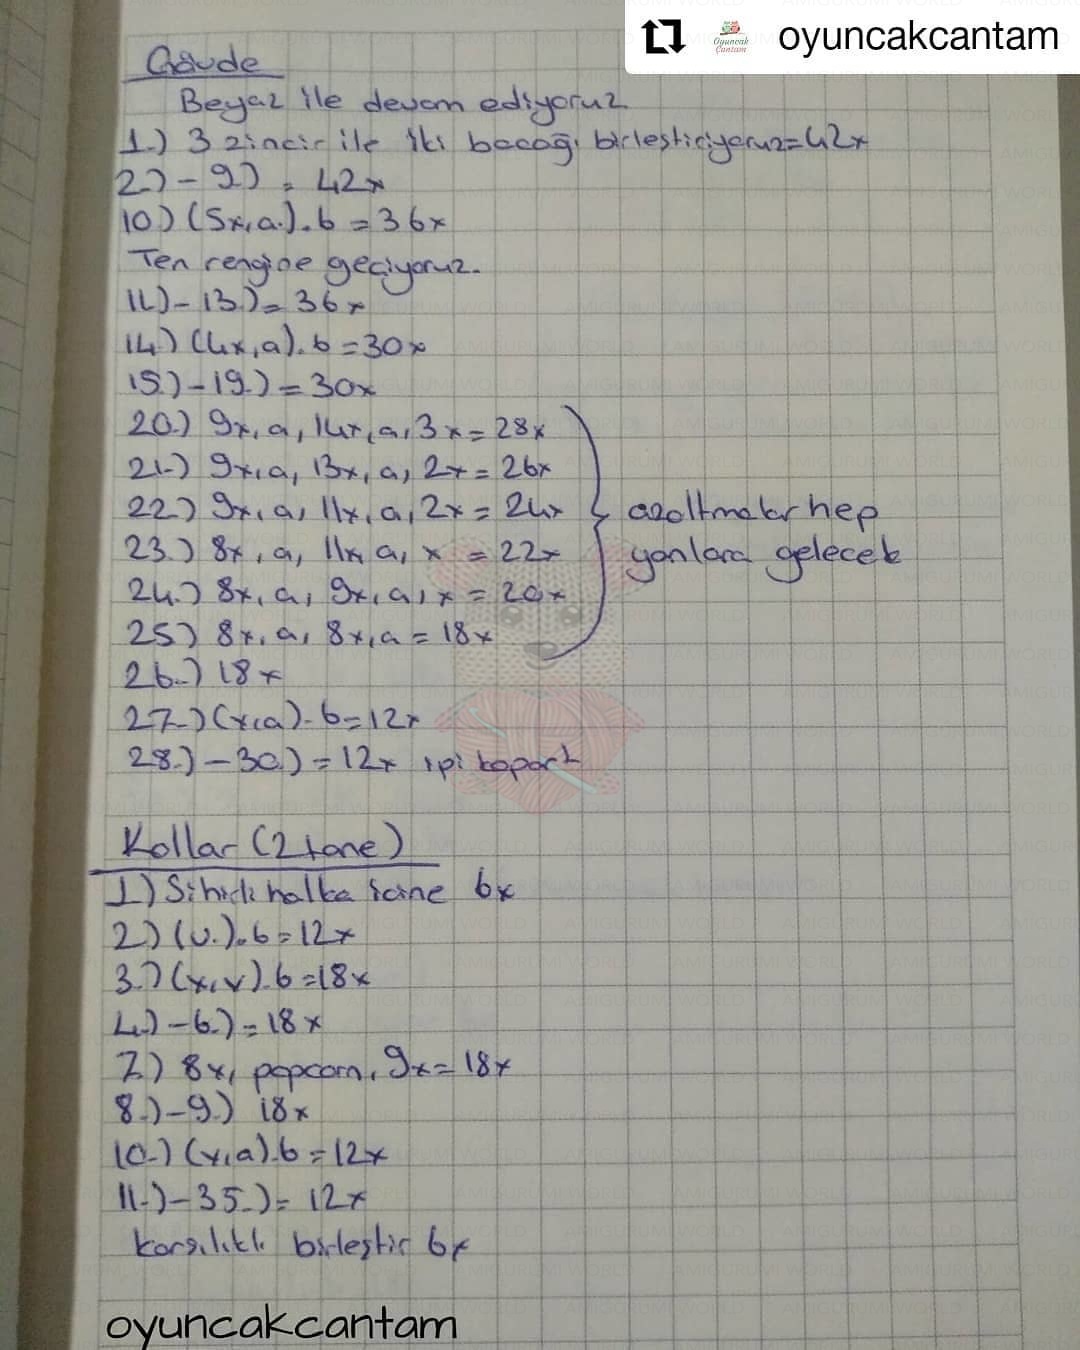 oyuncakcantam
Oyuncak
Çantam
Gövde
Beyaz ile devam ediyoruz
1.) 3 zincir ile iki bacağı birleştiriyoruz=42x
2.) - 9.) = 42x
10.) (5x,a.).6 = 36x
Ten rengine geçiyoruz.
11.) - 13.) = 36x
14.) (4x,a).6 = 30x
15.) - 19.) = 30x
20.) 9x, a, 14x, a, 3x = 28x
21.) 9x, a, 13x, a, 2x = 26x
22.) 9x, a, 11x, a, 2x = 24x
23.) 8x, a, 11x, a, x = 22x
24.) 8x, a, 9x, a, x = 20x
25.) 8x, a, 8x, a = 18x
azaltmalar hep
yanlara gelecek
26.) 18x
27.) (x,a).6 = 12x
28.) - 30.) = 12x ipi kopart
Kollar (2 tane)
1.) Sihirli halka içine 6x
2.) (v.).6 = 12x
3.) (x,v).6 = 18x
4.) - 6.) = 18x
7.) 8x, popcorn, 9x = 18x
8.) - 9.) 18x
10.) (x,a).6 = 12x
11.) - 35.) = 12x
karşılıklı birleştir 6x
oyuncakcantam